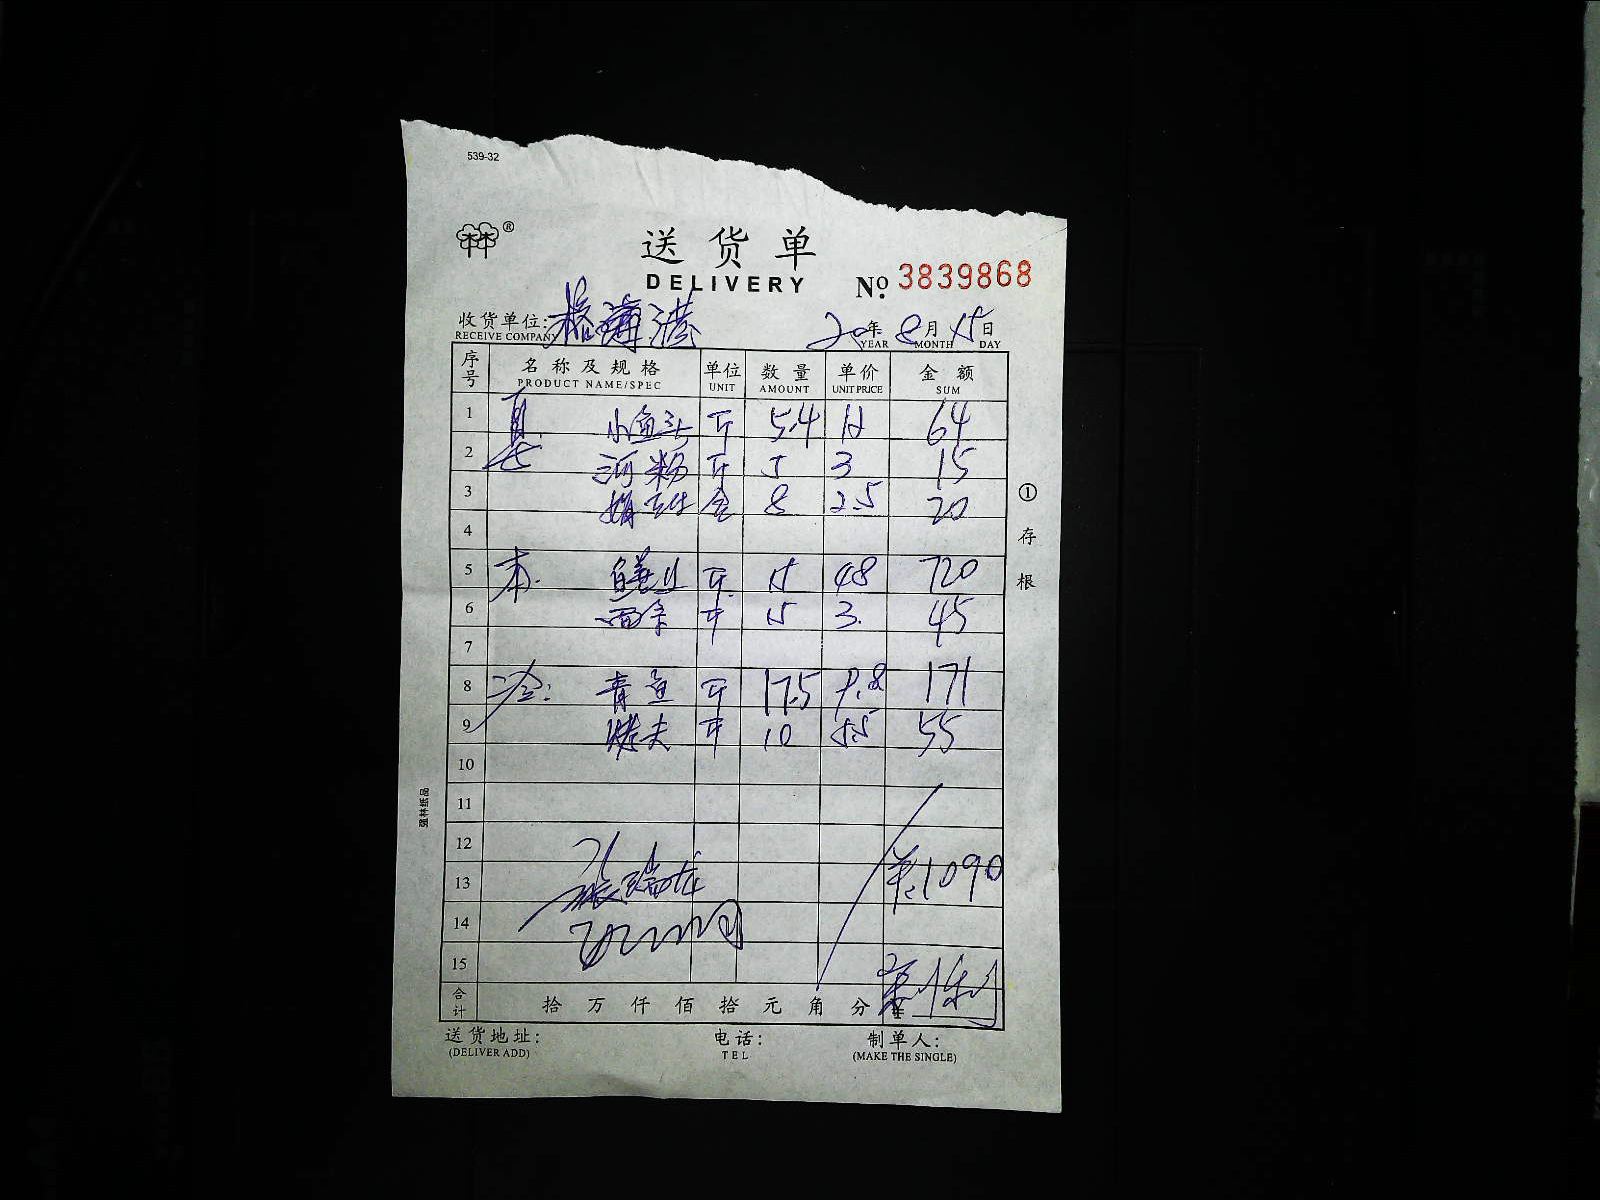 539-32
林林®
送货单
DELIVERY № 3839868
收货单位: 20年8月15日
RECEIVE COMPANY YEAR MONTH DAY
序号 名称及规格 单位 数量 单价 金额
PRODUCT NAME/SPEC UNIT AMOUNT UNIT PRICE SUM
1 小鱼头 斤 5.4 12 64
2 河粉 斤 5 3 15
3 盒 8 2.5 20
4
5 本. 斤 15 48 720
6 斤 15 3. 45
7
8 冷: 青鱼 斤 17.5 9.8 171
9 烤夫 斤 10 5.5 55
10
11
12
13 张瑞龙 1090
14
15
合计 拾万仟佰拾元角分 ¥
①存根
强林纸品
送货地址: 电话: 制单人:
(DELIVER ADD) TEL (MAKE THE SINGLE)